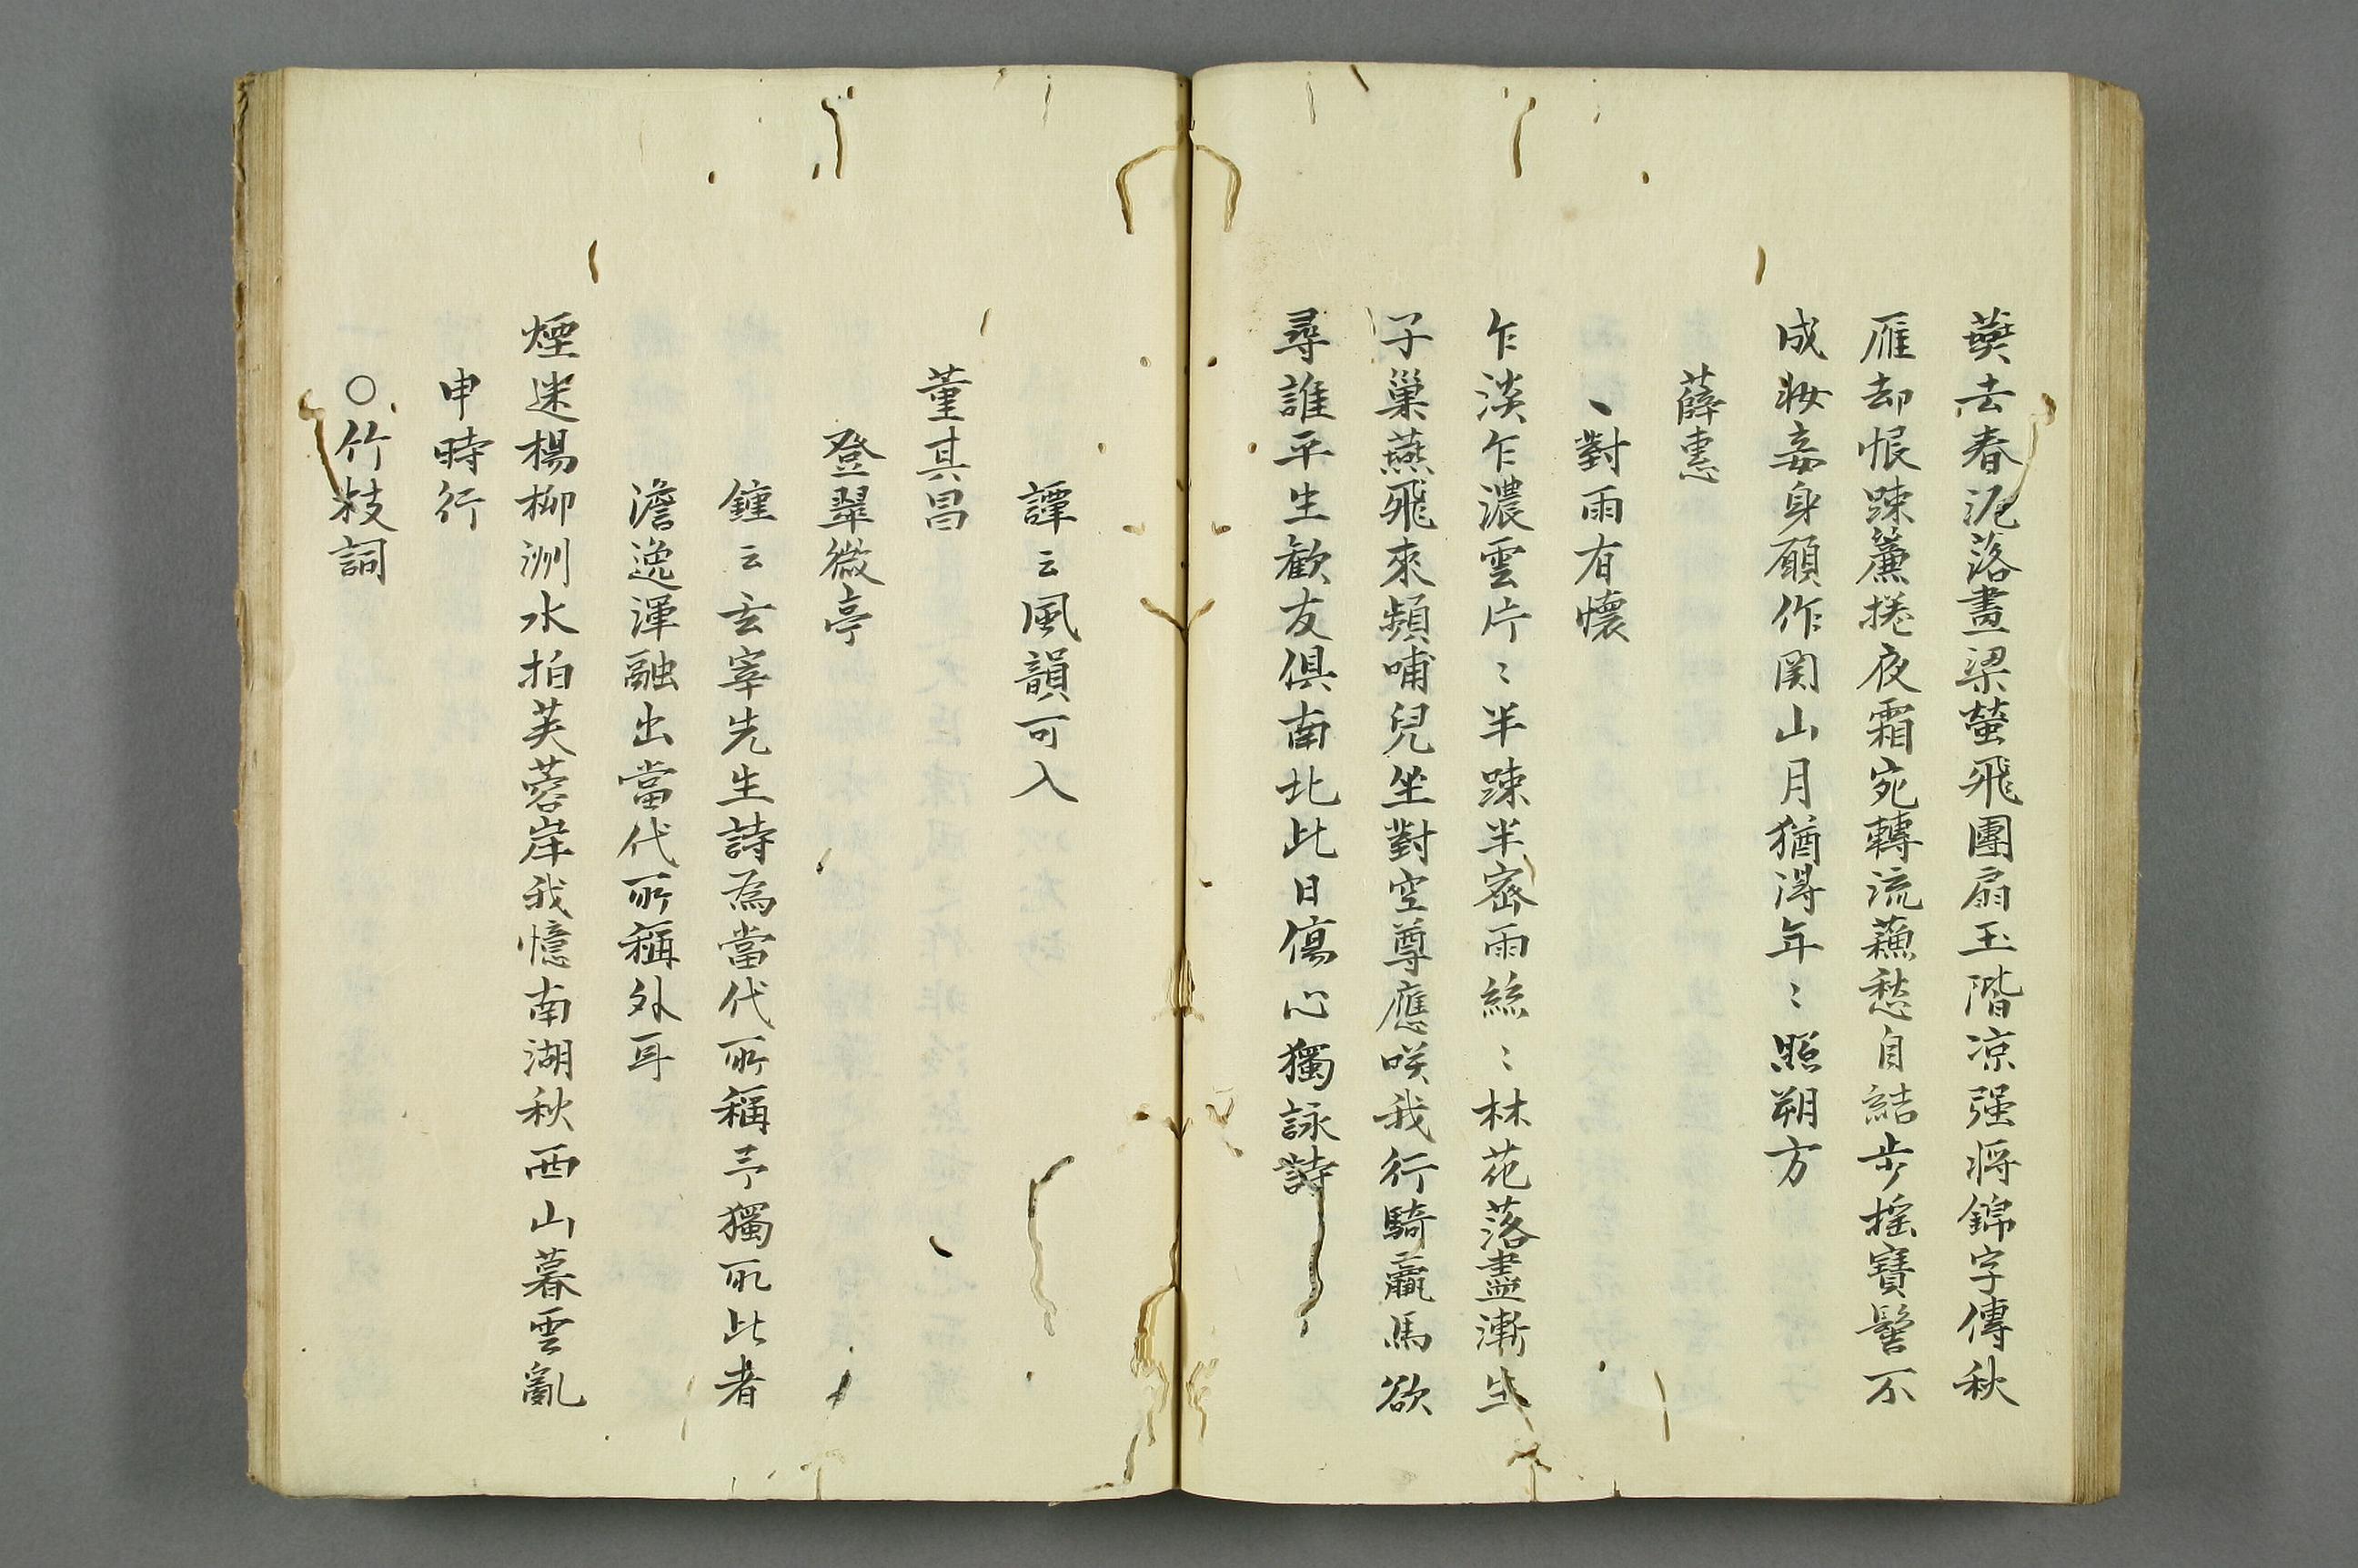 燕去春泥落畫梁螢飛團扇玉階凉强將錦字傳秋
雁却恨踈簾捲夜霜宛轉流蘓愁自結步摇寳髻不
成妝妾身願作関山月猶淂年〻照朔方
薛惠
、對雨有懷
乍淡乍濃雲片〻半踈半宻雨絲〻林花落盡漸生
子巢燕飛來頻哺兒坐對空尊應咲我行騎羸馬欲
尋誰平生歓友俱南北此日傷心獨詠詩
譚云風韻可入
董其昌
登翠微亭
鍾云玄宰先生詩為當代所稱予獨取此者
澹逸渾融出當代所稱外耳
煙迷楊柳洲水拍芙蓉岸我憶南湖秋西山暮雲亂
申時行
○竹枝詞